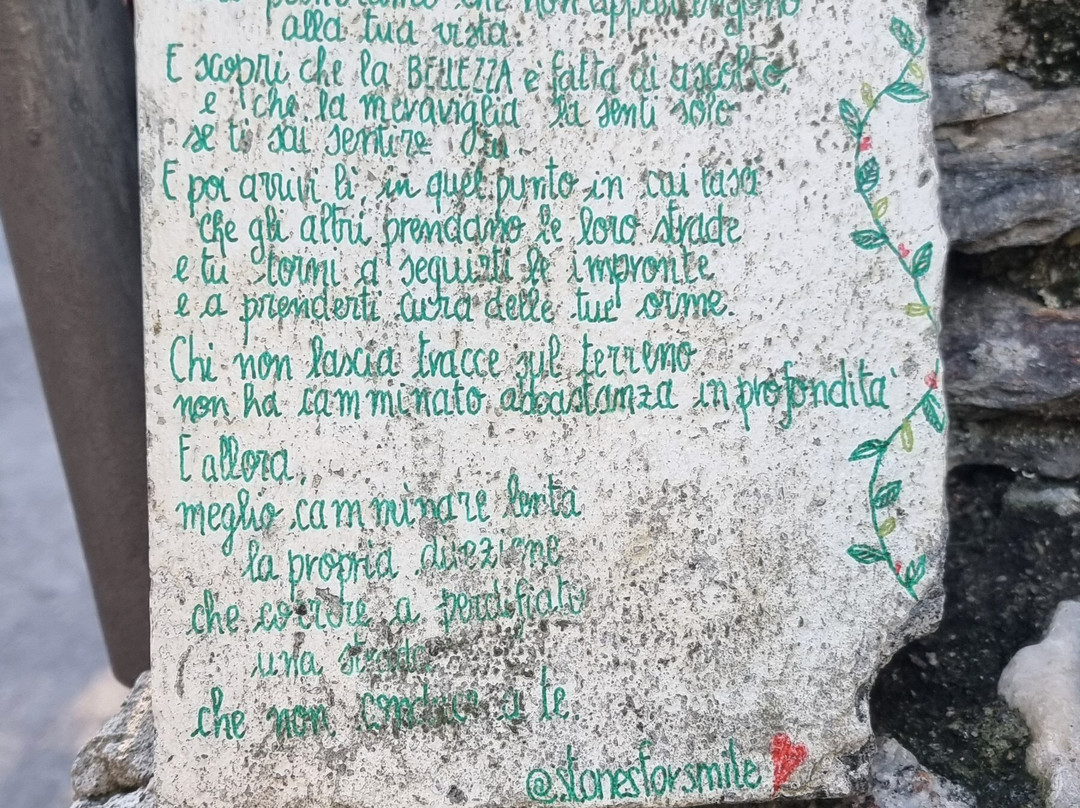 che non appartengono
alla tua vista.
E scopri che la BELLEZZA è fatta di ascolto,
e che la meraviglia la senti solo
se ti sai sentire
E poi arrivi lì, in quel punto in cui lasci
che gli altri prendano le loro strade
e tu torni a seguirti le impronte
e a prenderti cura delle tue orme.
Chi non lascia tracce sul terreno
non ha camminato abbastanza in profondita'
E allora,
meglio camminare lenta
la propria direzione
che correre a perdifiato
una strada
che non conduce a te.
@stonesforsmile